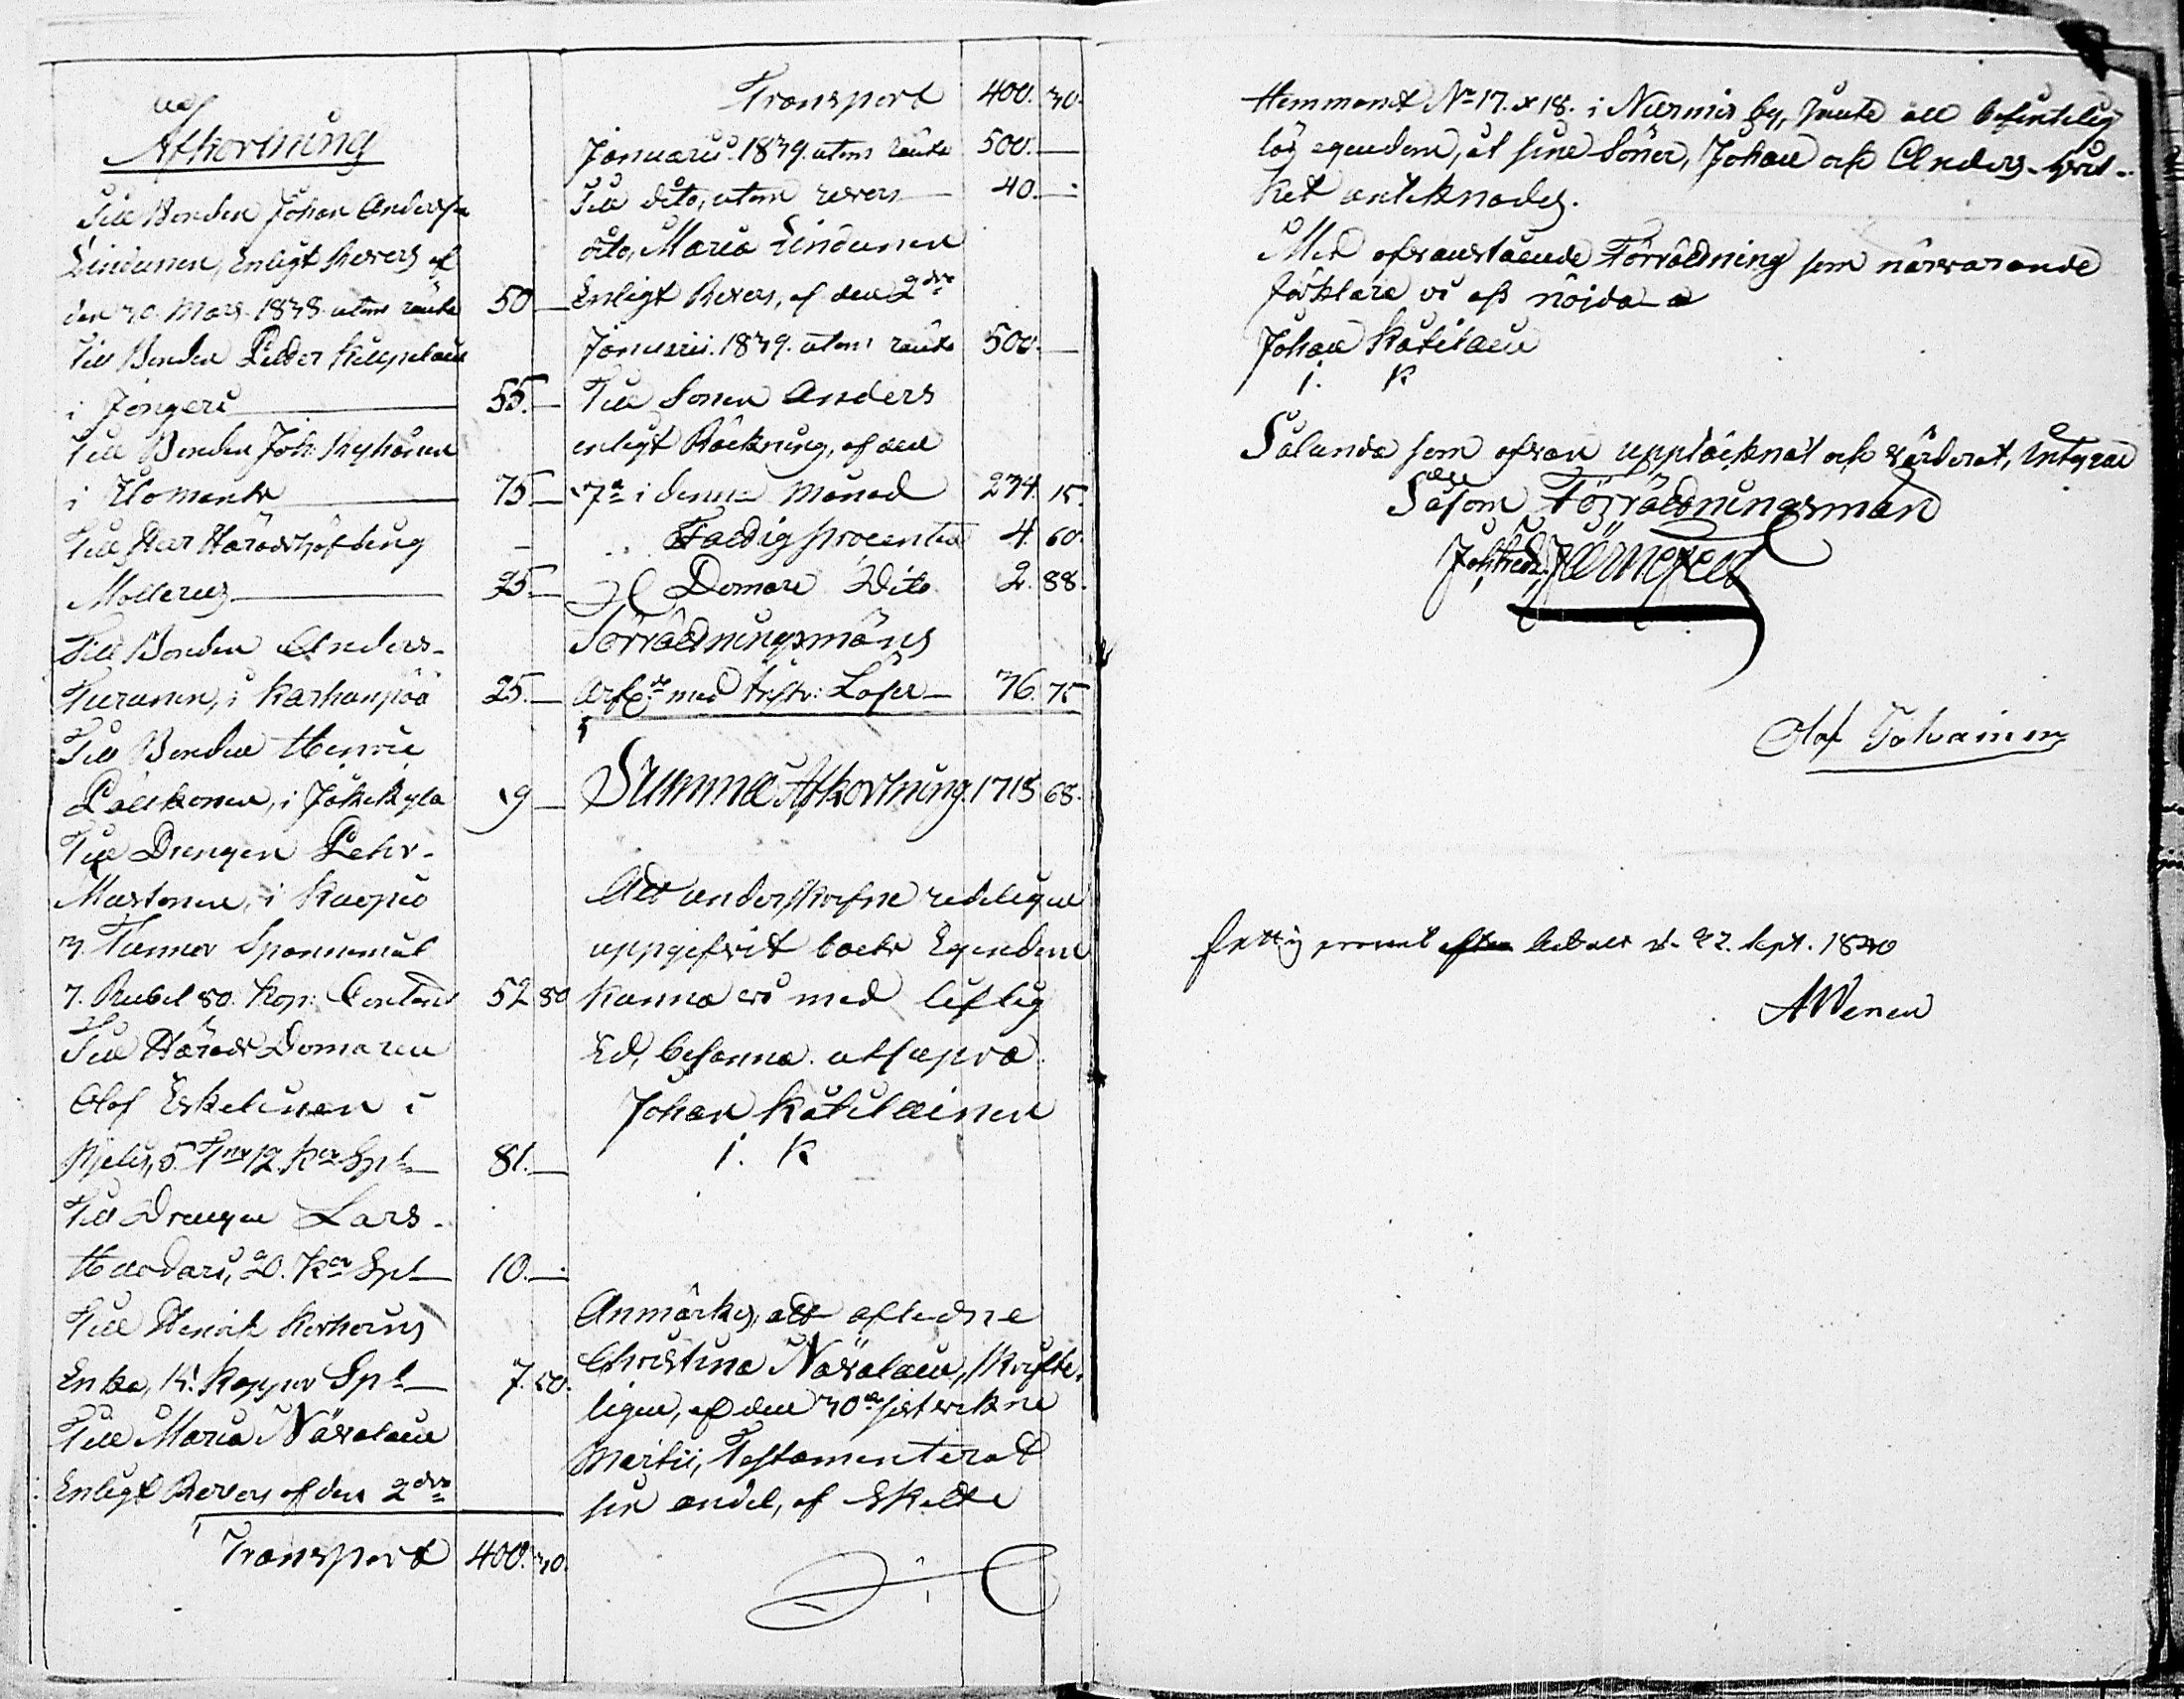 Afkortning
Till Bonden Johan Andersson
Lindunen, Enligt Revers af
den 30. Mars. 1838. utom ränta 50 —
Till Bonden Petter
i Jongeri 55. —
Till Bonden Joh: Ryhänen
i Ilomants 75 —
Till Herr Häradshöfding
Mollerus 35 —
Till Bonden Anders
Turunen, i Karhunpää 25. —
Till Bonden Henric
Pälikonen, i Jokikylä 9 —
Till Drengen Pehr
Mustonen, i Kuopio
3. Tunnor Spannemål
7. Rubel 80. Kop: Contant 52 80
Till Härads Domaren
Olof Eskelinen i
5. Tnr 12. Kpr Spl 81. —
Till Drengen Lars
20. Kpr Spl 10. —
Till Henrik Korhoins
Enka, 15. Kappar Spl 7. 50.
Till Maria Näväläin
Enligt Revers af den 2dra
Transport 400. 30.
Transport 400. 30.
Januarii 1839. utom ränta 500. —
Till dito, utom revers 40. —
dito, Maria Lindunen
Enligt Revers, af den 2dra
Januarii. 1839. utom ränta 500. —
Till Sonen Anders
enligt Räckning, af den
7de i denna Månad 234. 15.
Fattig procenten 4. 60.
Domare Dito 2. 88.
Förrättningsmäns
med Lösen 36. 75
Summa Afkortning. 1718 68.
Att underskrefne redeligen
uppgifvit boets Egendom
kunna vi med liflig
Ed, besanna. utsupra
Johan Kätiläinen
I. K
Anmärkes, att aflidne
Christina Näväläin, skrifte-
ligen, af den 30de sistvekne
Martii, Testamenterat
sin andel, af Skatte
Hemmanet No 17. & 18. i Nurmis by, jemte all befintelig
lös egendom, åt sine Söner, Johan och Anders, hvil-
ket anteknades.
Med ofvanstående Förrättning som närvarande
förklara vi oss nöjda
Johan Kätiläin
I. K
Sålunda som ofvan upptäcknat och värderat, Intygar
Såsom Förrättningsman
Joh: Fredr: Järnefelt
Olof Tolvainen
fattig procent betalt d. 22. Sept. 1840
AWenen